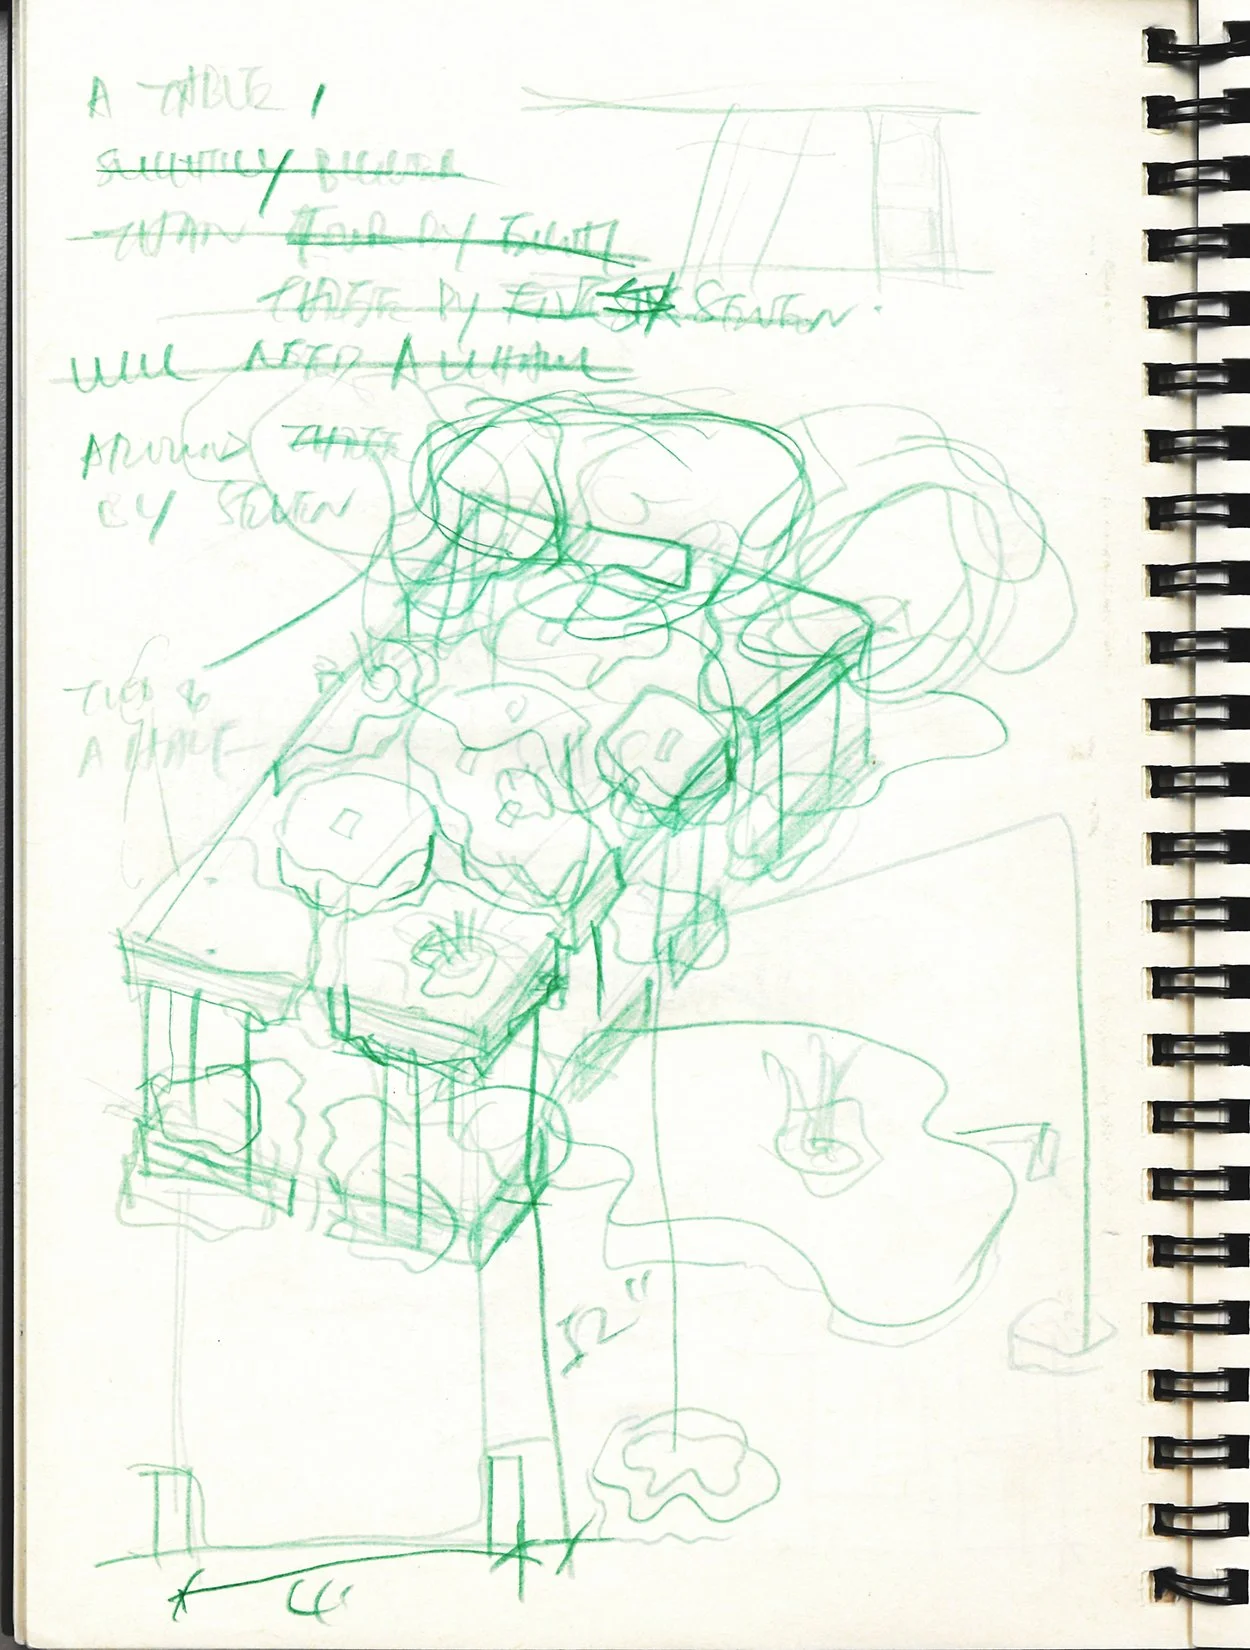 A TABLE,
SLIGHTLY BIGGER
THAN FOUR BY EIGHT
THREE BY FIVE SIX SEVEN.
WILL NEED A
AROUND THREE
BY SEVEN
A
52"